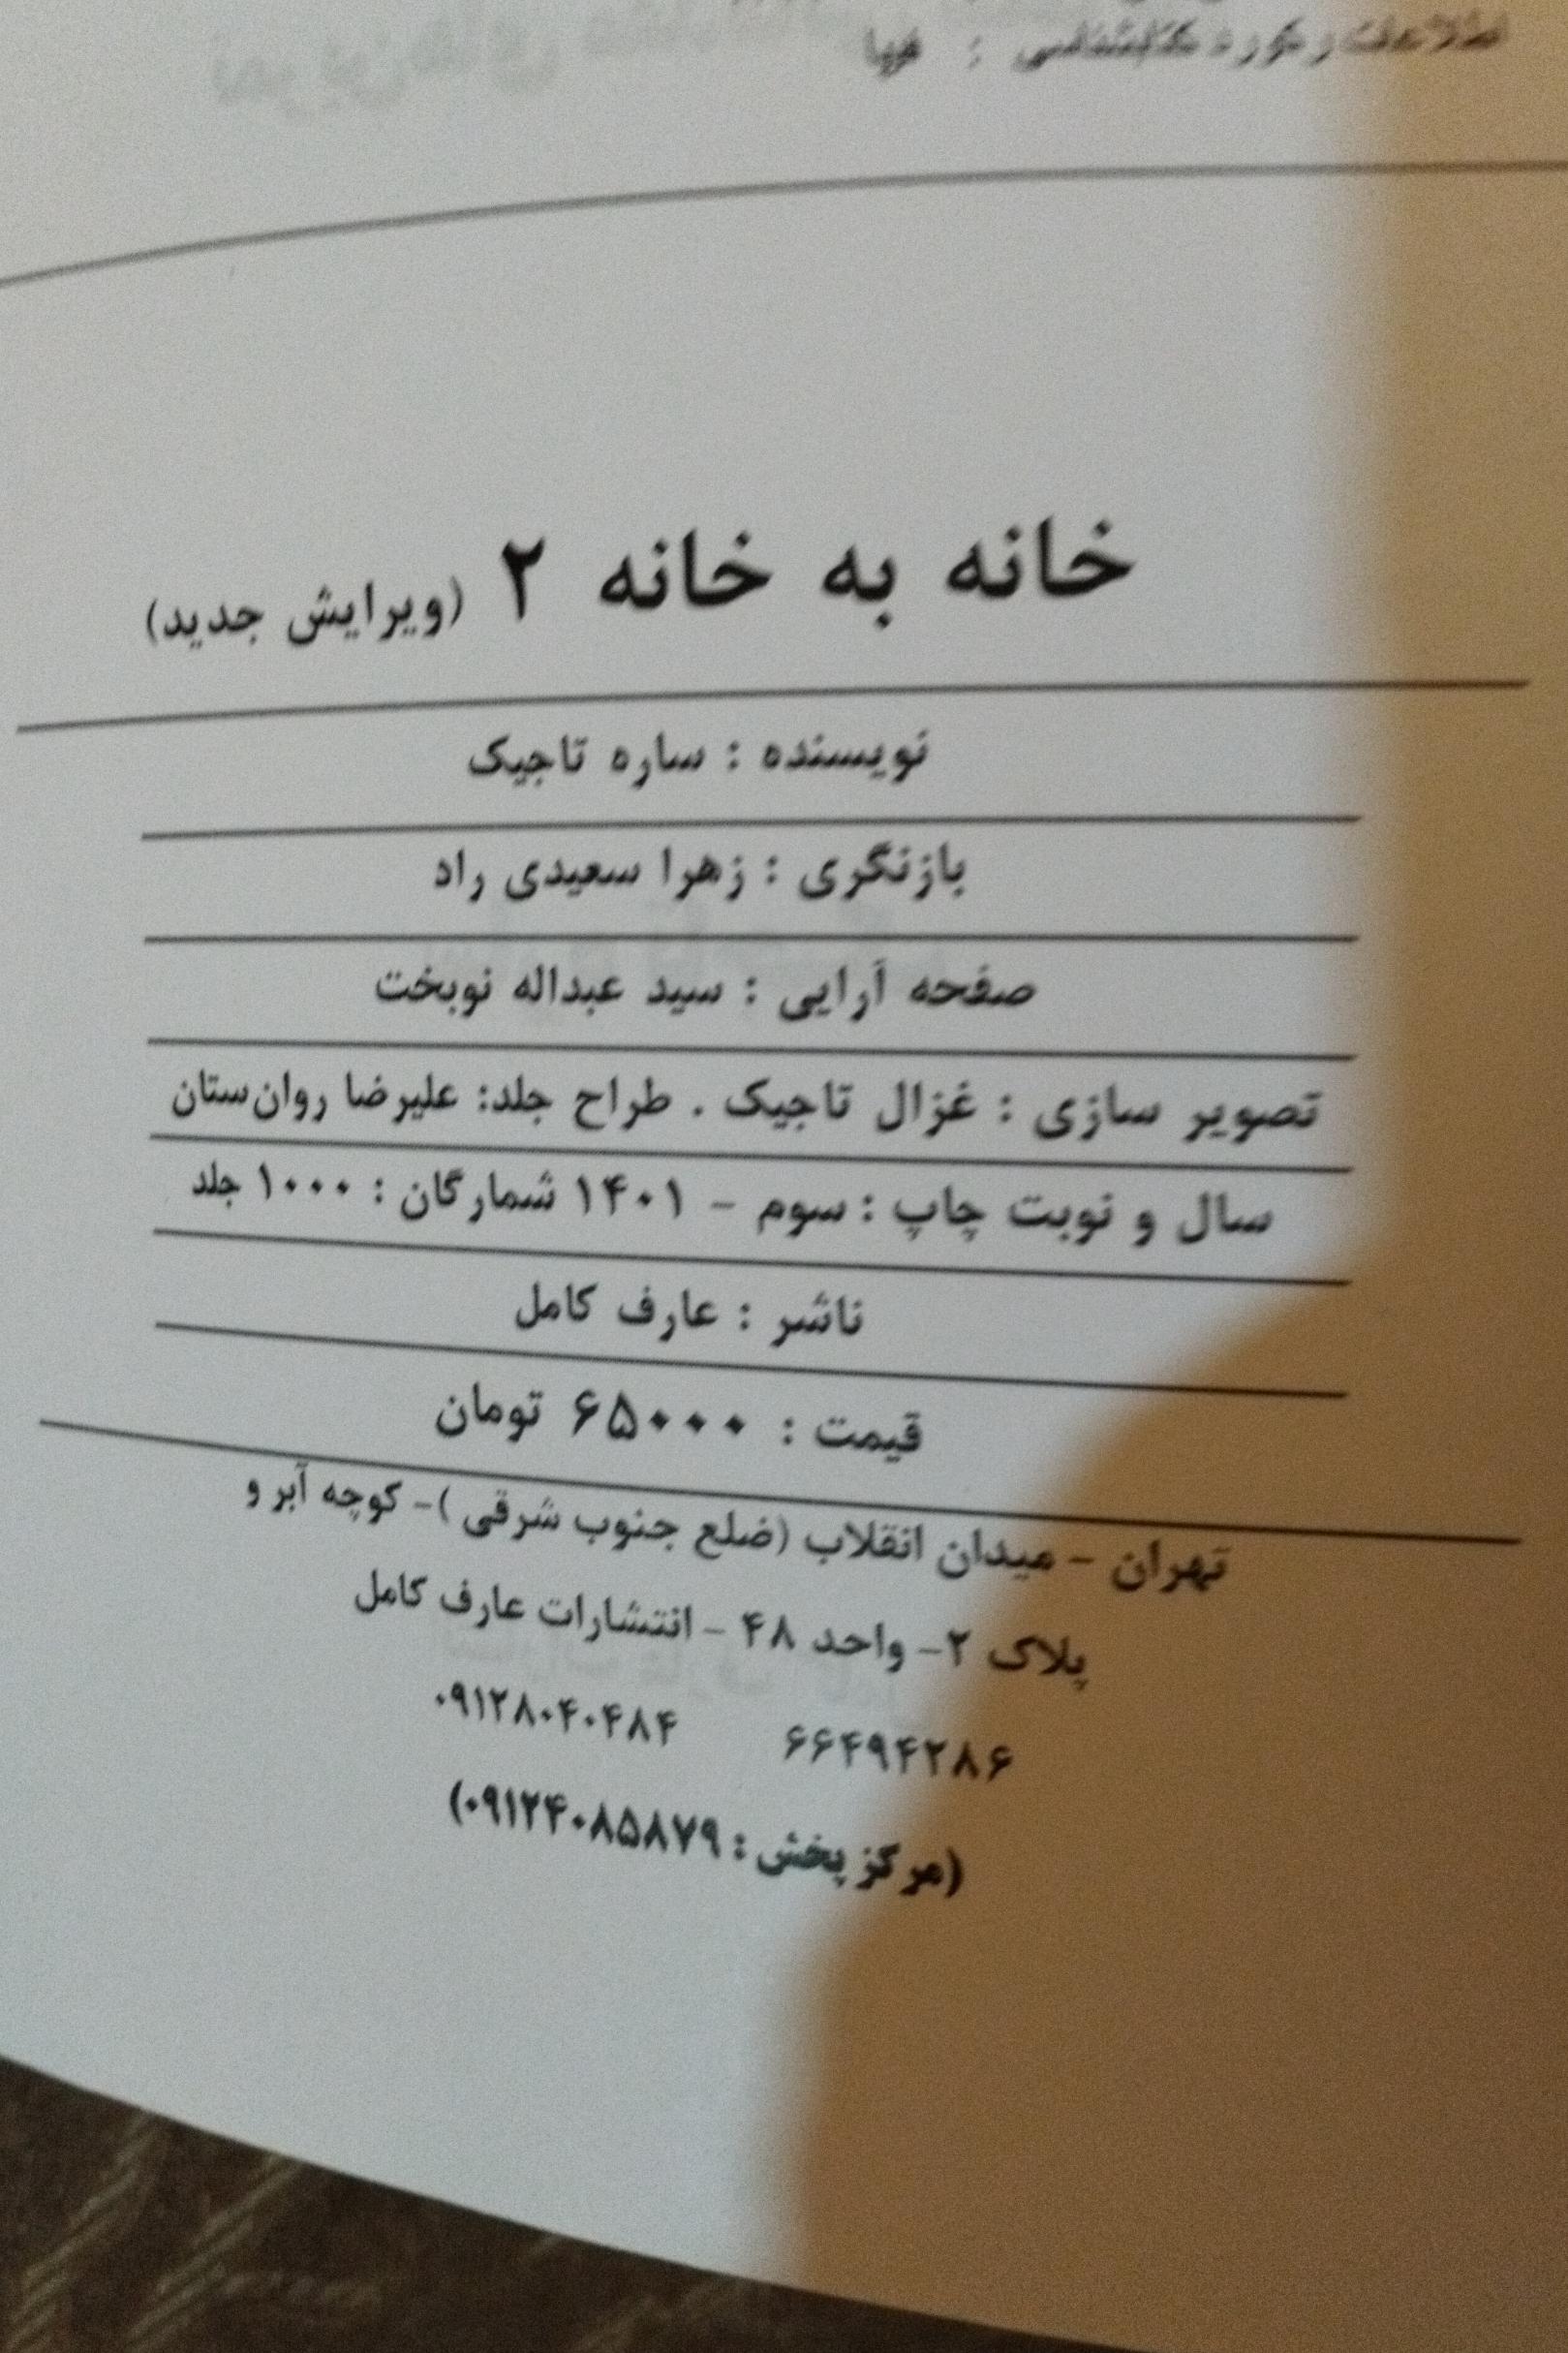 اطلاعات رکورد کتابشناسی : فیپا
خانه به خانه ۲ (ویرایش جدید)
نویسنده : ساره تاجیک
بازنگری : زهرا سعیدی راد
صفحه آرایی : سید عبداله نوبخت
تصویر سازی : غزال تاجیک . طراح جلد: علیرضا روان‌ستان
سال و نوبت چاپ : سوم - ۱۴۰۱ شمارگان : ۱۰۰۰ جلد
ناشر : عارف کامل
قیمت : ۶۵۰۰۰ تومان
تهران - میدان انقلاب (ضلع جنوب شرقی )- کوچه آبر و
پلاک ۲- واحد ۴۸ - انتشارات عارف کامل
۶۶۴۹۴۲۸۶ ۰۹۱۲۸۰۴۰۴۸۴
(مرکز پخش : ۰۹۱۲۴۰۸۵۸۷۹)